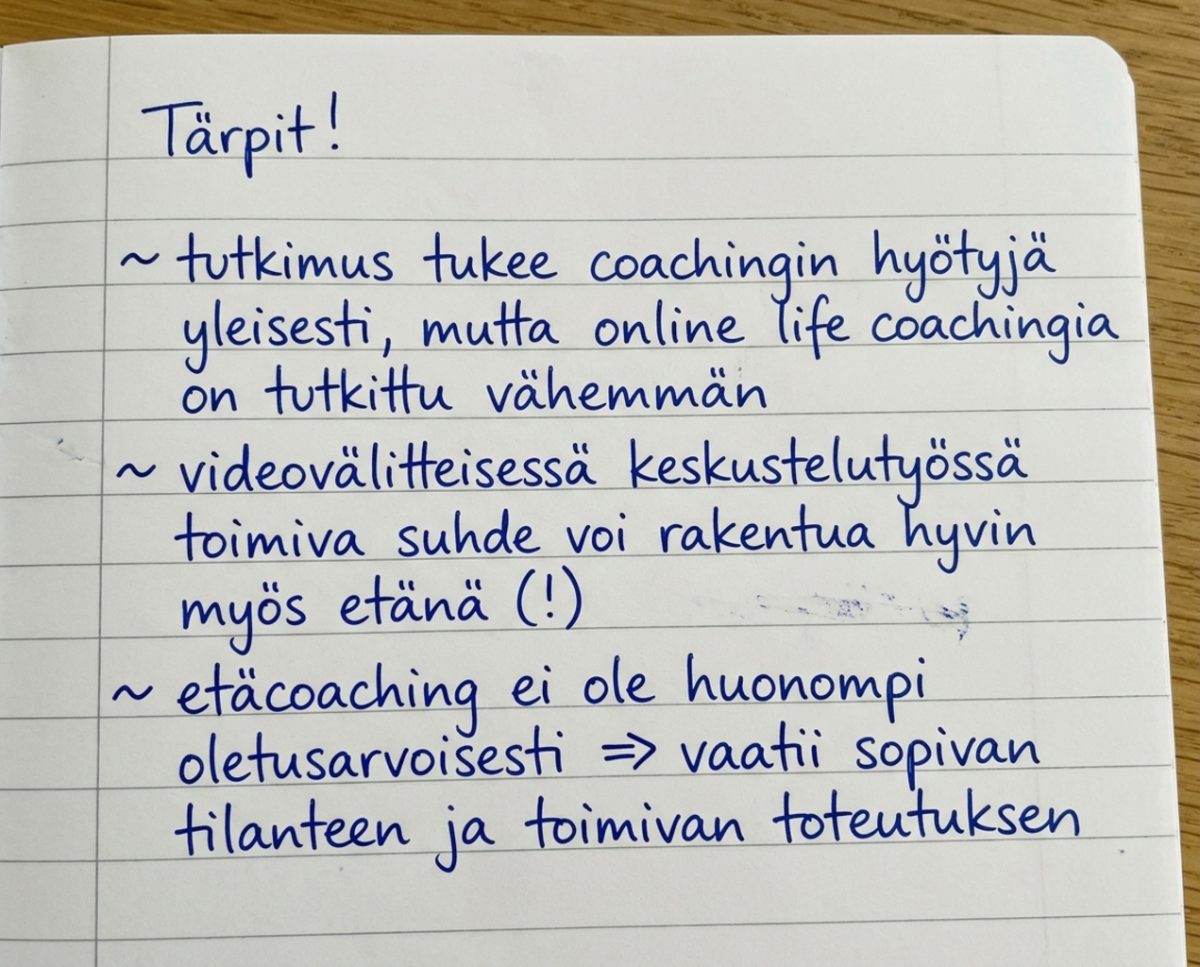 Tärpit!
~ tutkimus tukee coachingin hyötyjä
yleisesti, mutta online life coachingia
on tutkittu vähemmän
~ videovälitteisessä keskustelutyössä
toimiva suhde voi rakentua hyvin
myös etänä (!)
~ etäcoaching ei ole huonompi
oletusarvoisesti => vaatii sopivan
tilanteen ja toimivan toteutuksen